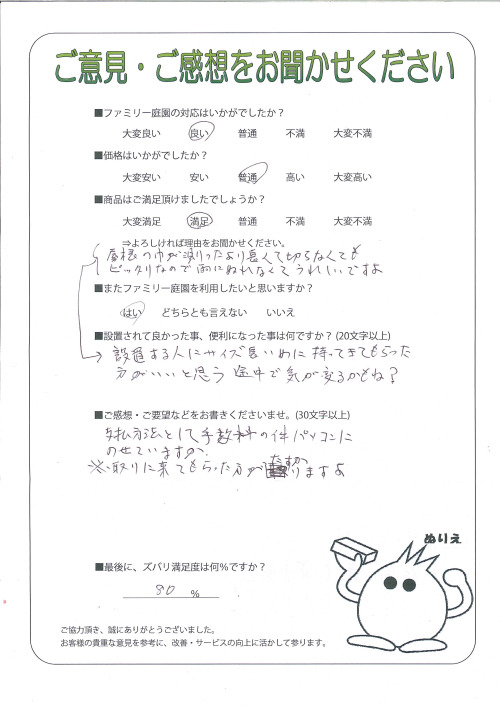 ご意見・ご感想をお聞かせください
■ファミリー庭園の対応はいかがでしたか？
大変良い 良い 普通 不満 大変不満
■価格はいかがでしたか？
大変安い 安い 普通 高い 大変高い
■商品はご満足頂けましたでしょうか？
大変満足 満足 普通 不満 大変不満
⇒よろしければ理由をお聞かせください。
屋根の巾が減ったより長くて切らなくても
ピッタリなので雨にぬれなくてうれしいですよ
■またファミリー庭園を利用したいと思いますか？
はい どちらとも言えない いいえ
■設置されて良かった事、便利になった事は何ですか？(20文字以上)
設置する人にサイズ長いめに持ってきてもらった
方がいいと思う 途中で気が変るかもね？
■ご感想・ご要望などをお書きくださいませ。(30文字以上)
支払方法として手数料の件パソコンに
のせていますか、
取りに来てもらった方がたすかりますよ
ぬりえ
■最後に、ズバリ満足度は何％ですか？
80 %
ご協力頂き、誠にありがとうございました。
お客様の貴重な意見を参考に、改善・サービスの向上に活かして参ります。